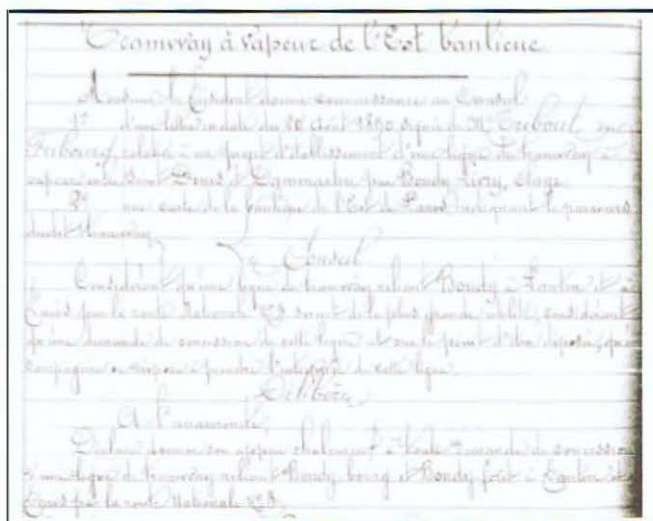 Tramway à vapeur de l'Est banlieue
Monsieur le Président donne connaissance au Conseil
1° d'une lettre en date du 20 Août 1890 signée de Mr
relative à un projet d'établissement d'une ligne de tramway à
vapeur entre Saint Denis et Dammartin par Bondy, Livry, Claye
2° une carte de la banlieue de l'Est de Paris, indiquant le parcours
dudit tramway
Le Conseil
Considérant qu'une ligne de tramway reliant Bondy à Pantin et à
Paris par la route Nationale N°3 serait de la plus grande utilité, considérant
qu'une demande de concession de cette ligne est sur le point d'être déposée,
compagnie se propose à prendre de cette ligne
Délibère
A l'unanimité,
Déclare donner son appui chaleureux à toute demande de concession
d'une ligne de tramway reliant Bondy bourg et Bondy forêt à Pantin et
Paris par la route Nationale N°3.